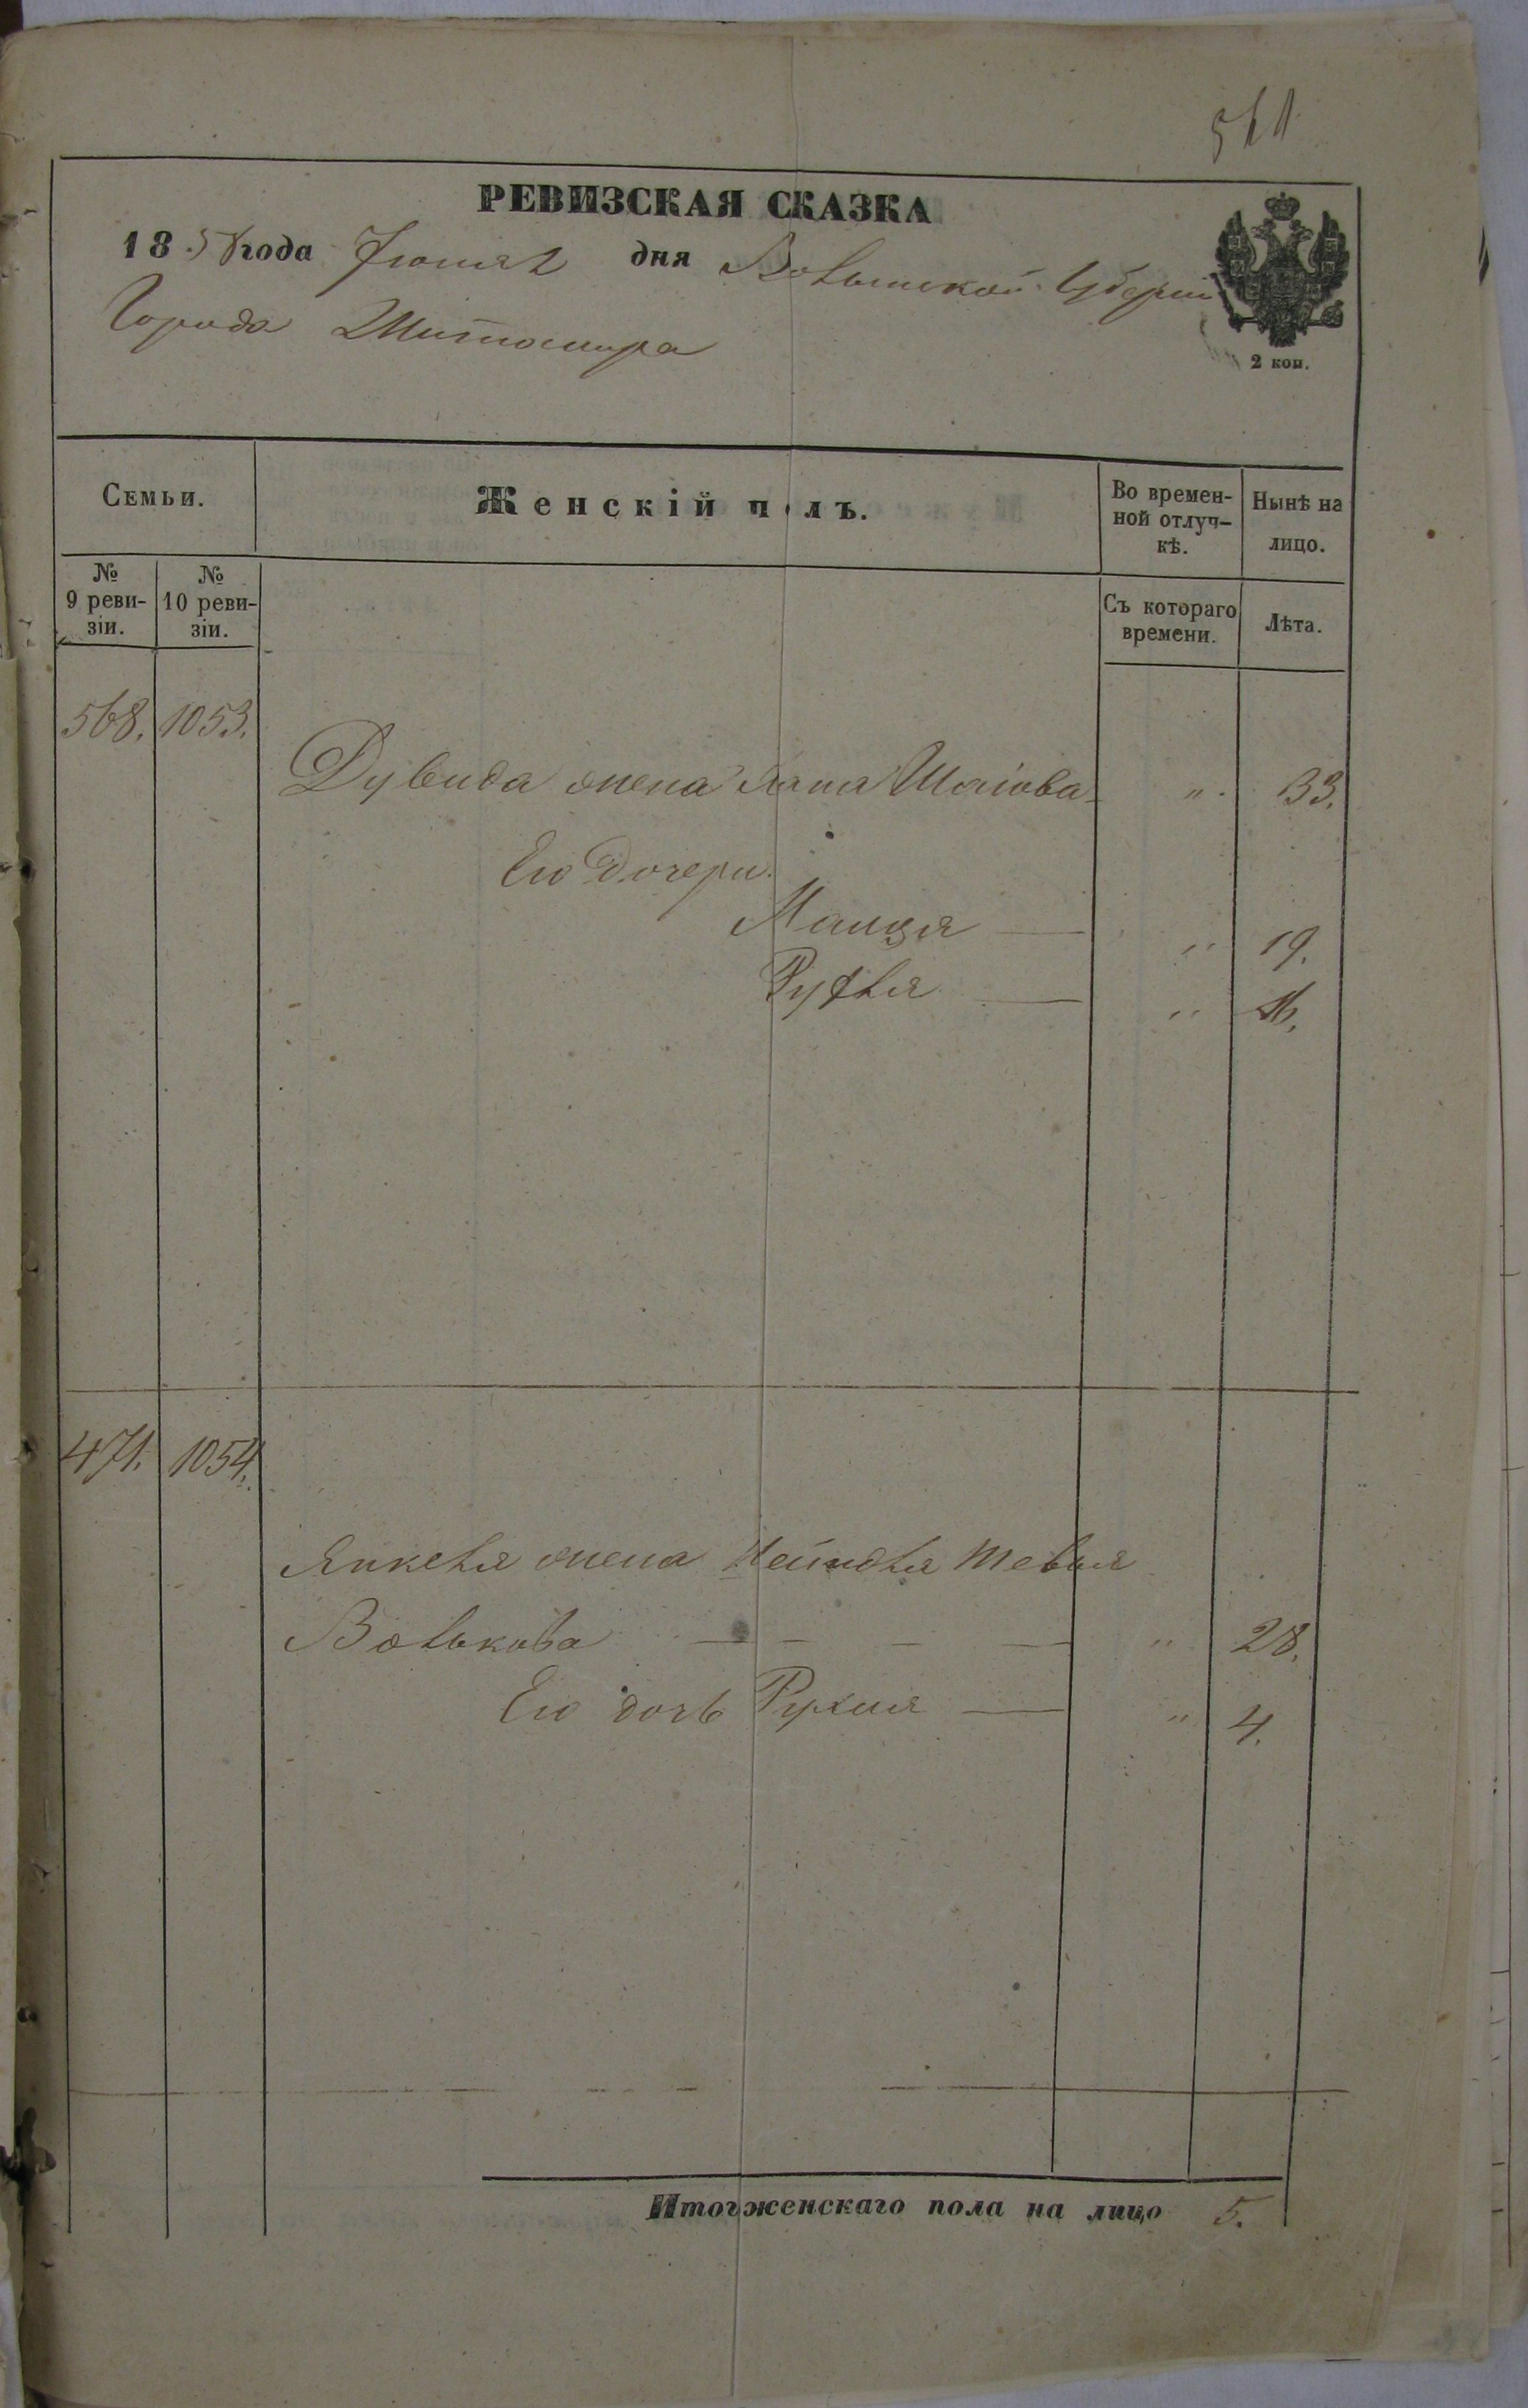 561
РЕВИЗСКАЯ СКАЗКА
1858 года Іюня 2 дня Волынской Губерніи
Города Житомира
2 коп.
Семьи.
Женскій полъ.
Во времен-
ной отлуч-
кѣ.
Нынѣ на
лицо.
№
9 реви-
зіи.
№
10 реви-
зіи.
Съ котораго
времени.
Лѣта.
568. 1053.
Дувида жена Хана Шаіова " 33.
Его дочери.
Манця — " 19.
Руфля — " 16.
471. 1054.
Янкеля жена
Волькова — — — — " 28.
Его дочь Рухля — " 4.
Итог женскаго пола на лицо 5.